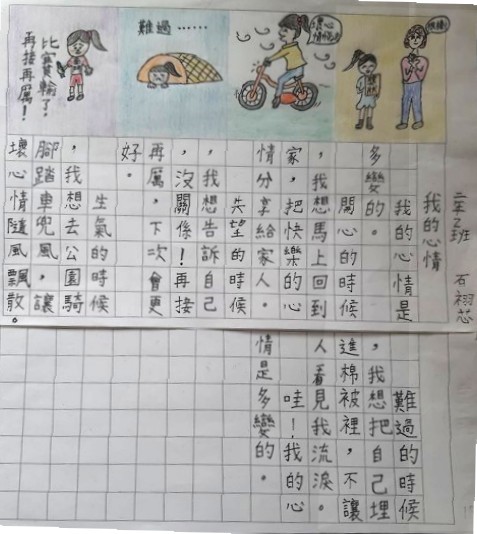 二年乙班 石栩芯
我的心情
我的心情是
多變的。
開心的時候
，我想馬上回到
家，把快樂的心
情分享給家人。
失望的時候
，我想告訴自己
，沒關係！再接
再厲，下次會更
好。
生氣的時候
，我想去公園騎
腳踏車兜風，讓
壞心情隨風飄散。
難過的時候
，我想把自己埋
進棉被裡，不讓
人看見我流淚。
哇！我的心
情是多變的。
難過……
比賽輸了，
再接再厲！